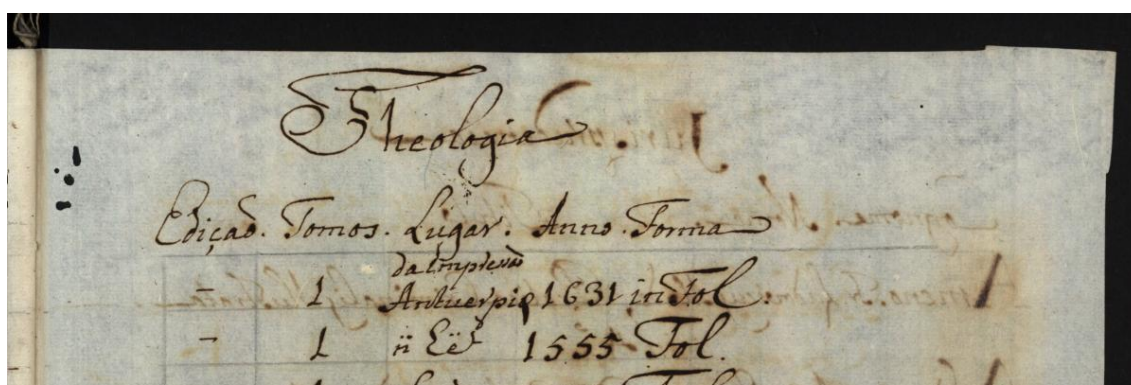 Theologia
Ediçaõ. Tomos. Lugar. Anno. Forma
da Impressaõ
- 1 Antuerpię 1631 in Fol.
- 1 1555 Fol.